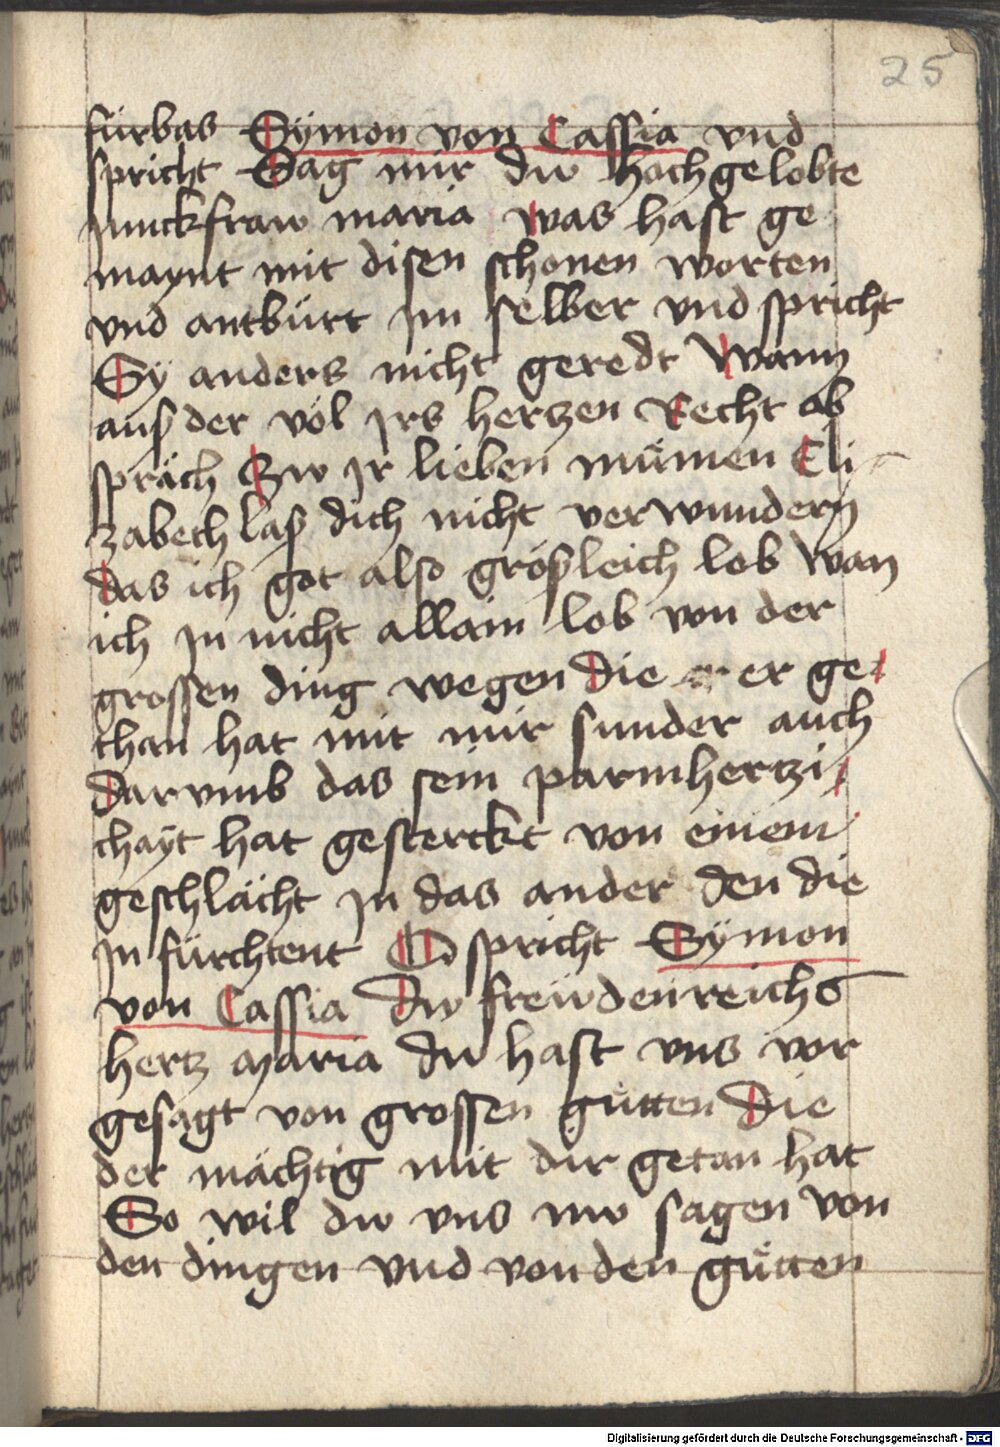 25
fürbas Sÿmon von Cassia vnd
spricht Sag mir dw hochgelobte
junckfraw maria was hast ge
maynt mit disen schonen worten
vnd antbürt im selber vnd spricht
Sy anders nicht geredt Wann
auß der völ jrs hertzen Recht ab
spräch Zw jr lieben mümen Eli
zabeth laß dich nicht verwundern
das ich got also größleich lob wan
ich jn nicht allain lob von der
grossen ding wegen die er ge
than hat mit mir sunder auch
Darvmb das sein parmhertzi
chayt hat gesterckt von einem
geschlächt jn das ander den die
jn fürchtent O spricht Sÿmon
von Cassia Dw frewdenreichs
hertz maria du hast vns vor
gesagt von grossen gütten Die
der mächtig mit dir getan hat
So wil dw vns nw sagen von
den dingen vnd von den gütten
Digitalisierung gefördert durch die Deutsche Forschungsgemeinschaft - DFG